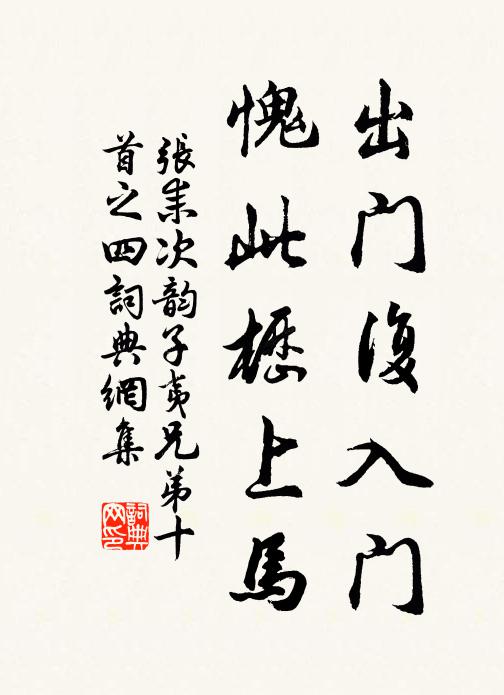 出門復入門
愧此櫪上馬
張耒次韵子夷兄弟十
首之四詞典網集
詞典
网印